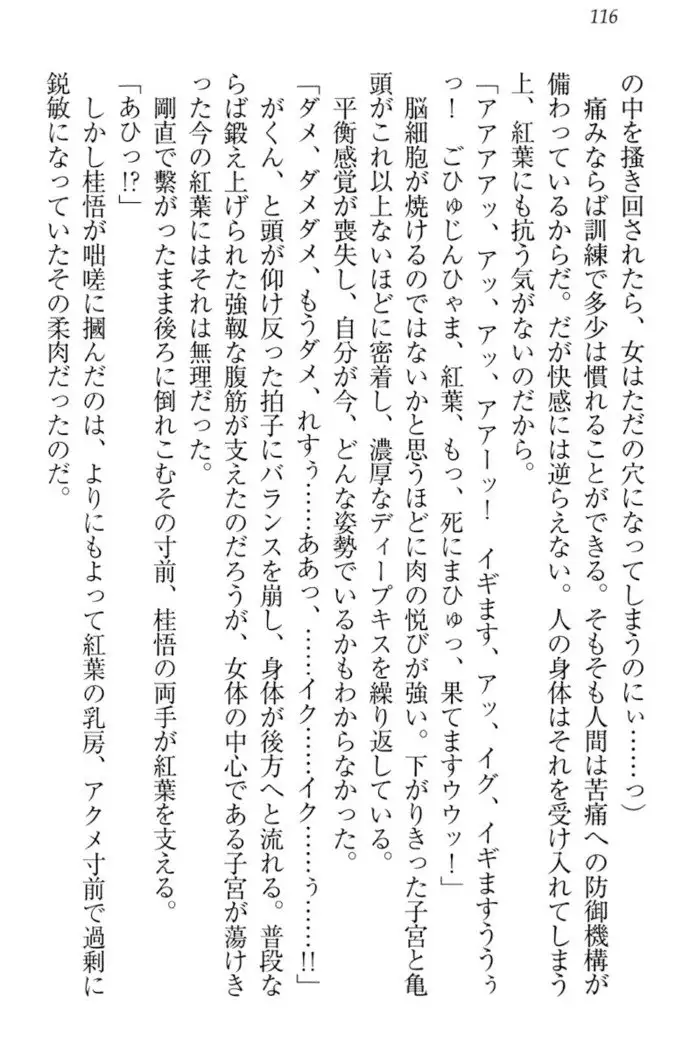 116
の中を掻き回されたら、女はただの穴になってしまうのにぃ……っ）
　痛みならば訓練で多少は慣れることができる。そもそも人間は苦痛への防御機構が
備わっているからだ。だが快感には逆らえない。人の身体はそれを受け入れてしまう
上、紅葉にも抗う気がないのだから。
「アアアアッ、アッ、アッ、アアーッ！　イギます、アッ、イグ、イギますうううぅ
っ！　ごひゅじんひゃま、紅葉、もっ、死にまひゅっ、果てますウウッ！」
　脳細胞が焼けるのではないかと思うほどに肉の悦びが強い。下がりきった子宮と亀
頭がこれ以上ないほどに密着し、濃厚なディープキスを繰り返している。
　平衡感覚が喪失し、自分が今、どんな姿勢でいるかもわからなかった。
「ダメ、ダメダメ、もうダメ、れすぅ……ああっ、……イク……イク……ぅ……!!」
　がくん、と頭が仰け反った拍子にバランスを崩し、身体が後方へと流れる。普段な
らば鍛え上げられた強靱な腹筋が支えたのだろうが、女体の中心である子宮が蕩けき
った今の紅葉にはそれは無理だった。
　剛直で繋がったまま後ろに倒れこむその寸前、桂悟の両手が紅葉を支える。
「あひっ!?」
　しかし桂悟が咄嗟に摑んだのは、よりにもよって紅葉の乳房、アクメ寸前で過剰に
鋭敏になっていたその柔肉だったのだ。